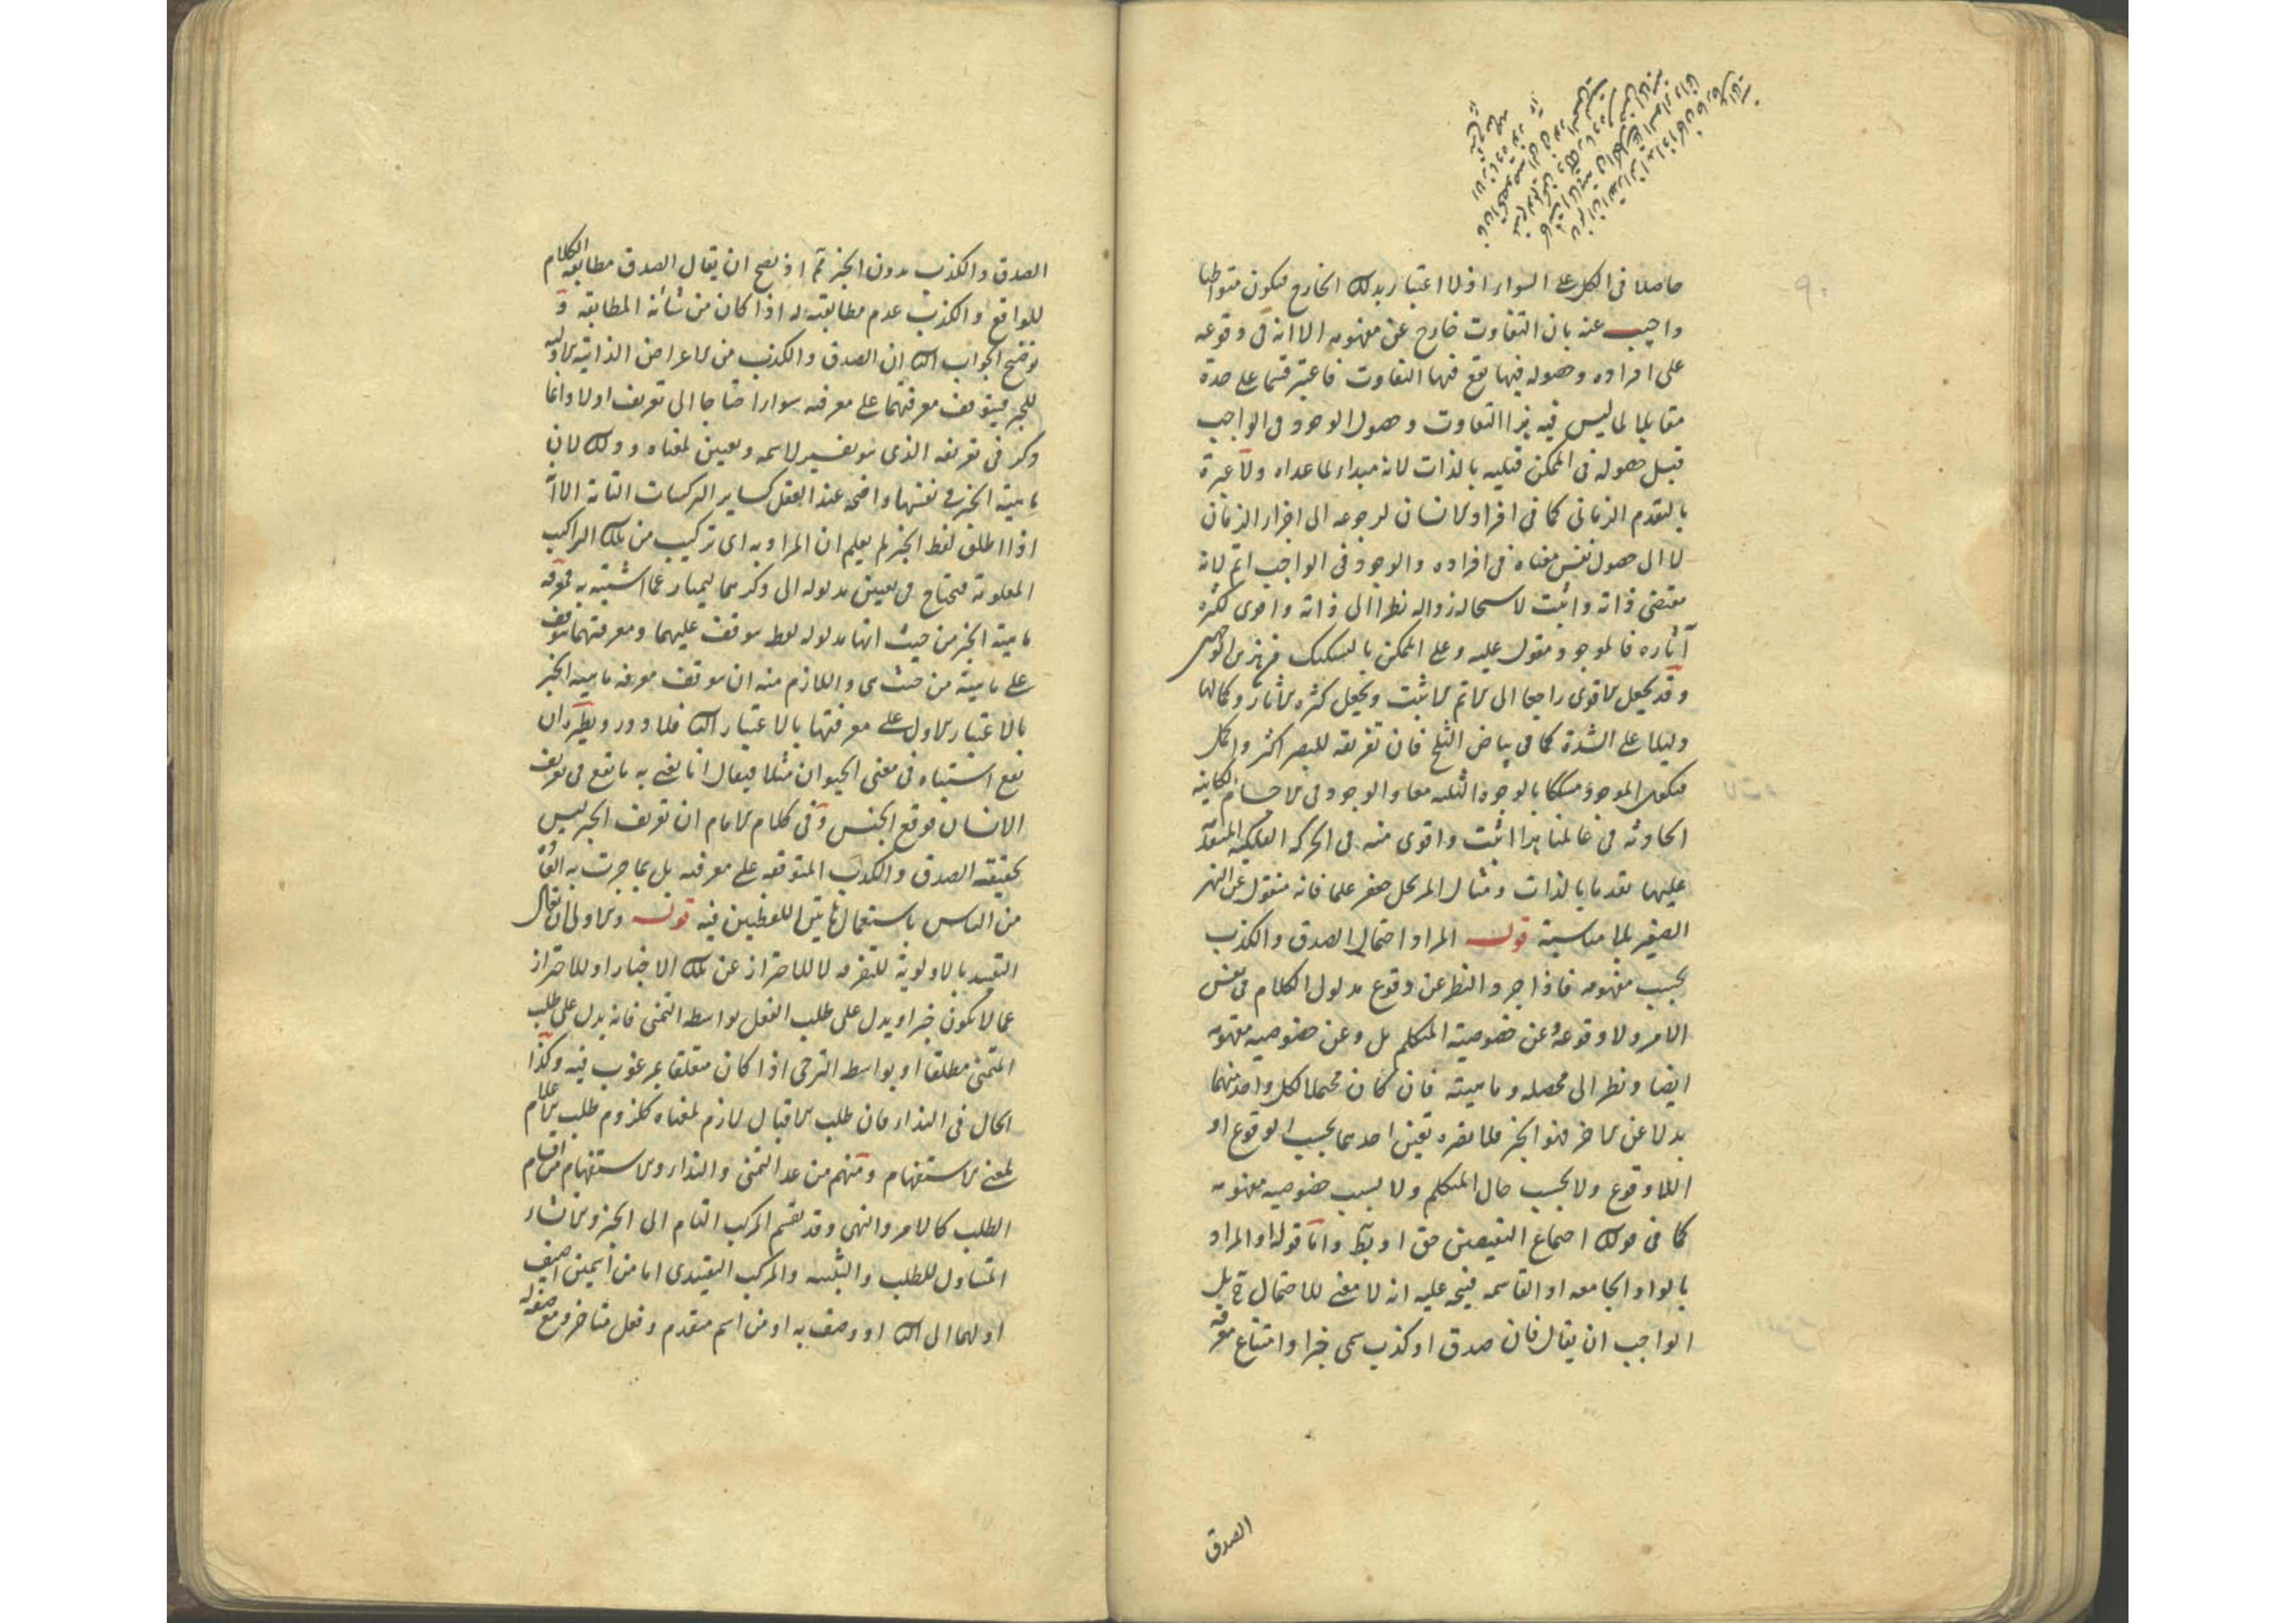 حاصلا فى الكل على السواء اذ لا اعتبار بذلك الخارج فيكون متواطيا
واجيب عنه بان التفاوت خارج عن مفهومه الا انه فى وقوعه
على افراده وحصوله فيها يقع فيها التفاوت فاعتبر قسما على حدة
مقابلا لما ليس فيه هذا التفاوت وحصول الوجود فى الواجب
قبل حصوله فى الممكن قبليه بالذات لانه مبداء لما عداه ولا عبرة
بالتقدم الزمانى كما فى افراد الانسان لرجوعه الى اجزاء الزمان
لا الى حصول نفس معناه فى افراده والوجود فى الواجب اتم لانه
مقتضى ذاته واثبت لاستحالة زواله نظرا الى ذاته واقوى لكثرة
آثاره فالموجود مقول عليه وعلى الممكن بالتشكيك من هذه الوجوه
وقد يجعل الاقوى راجعا الى الاتم الاثبت ويجعل كثرة الاثار وكمالها
دليلا على الشدة كما فى بياض الثلج فان تفريقه للبصر اكثر واكمل
فيكون الموجود مشككا بالوجوه الثلثه معا والوجود فى الاجسام الكاينة
الحادثه فى عالمنا هذا اثبت واقوى منه فى الحركه الفلكيه المتقدمة
عليها تقدما بالذات ومثال المرتجل جعفر علما فانه منقول عن النهر
الصغير بلا مناسبة قوله المراد احتمال الصدق والكذب
بحسب مفهومه فاذا جرد النظر عن وقوع مدلول الكلام فى نفس
الامر ولا وقوعه وعن خصوصية المتكلم بل وعن خصوصيه مفهومه
ايضا ونظر الى محصله وماهيته فان كان محتملا لكل واحد منهما
بدلا عن الاخر فهو الخبر فلا يضره تعين احدهما بحسب الوقوع او
اللاوقوع ولا بحسب حال المتكلم ولا بسبب خصوصيه مفهومه
كما فى قولك اجتماع النقيضين حق او بط واما قوله او المراد
بالواو الجامعه او القاسمه فيتجه عليه انه لا معنى للاحتمال ح بل
الواجب ان يقال فان صدق او كذب سمى خبرا وامتناع معرفة
الصدق
الصدق والكذب بدون الخبر ثم اذ يصح ان يقال الصدق مطابقة الكلام
للواقع والكذب عدم مطابقته له اذا كان من شأنه المطابقه و
توضيح الجواب الثانى ان الصدق والكذب من الاعراض الذاتية الاولية
للخبر فيتوقف معرفتهما على معرفته سواء احتاجا الى تعريف او لا وانما
ذكر فى تعريفه الذى هو تفسير لاسمه وتعيين لمعناه وذلك لان
ماهية الخبر فى نفسها واضحه عند العقل كساير التركيبات التامة الا انه
اذا اطلق لفظ الخبر لم يعلم ان المراد به اى تركيب من تلك التراكيب
المعلومة فيحتاج فى تعيين مدلوله الى ذكرهما ليمتاز عما اشتبه به فمعرفة
ماهية الخبر من حيث انها مدلوله لفظه يتوقف عليهما ومعرفتهما يتوقف
على ماهيته من حيث هى واللازم منه ان يتوقف معرفه ماهية الخبر
بالاعتبار الاول على معرفتها بالاعتبار الثانى فلا دور ونظيره ان
يقع اشتباه فى معنى الحيوان مثلا فيقال انا نعنى به ما يقع فى تعريف
الانسان موقع الجنس وفى كلام الامام ان تعريف الخبر ليس
بحقيقة الصدق والكذب المتوقفه على معرفته بل بما جرت به العادة
من الناس باستعمال هاتين اللفظين فيه قوله والاولى ان يقال
التقييد بالاولوية للتفرقه لا للاحتراز عن تلك الاخبار او للاحتراز
عما لا يكون خبرا ويدل على طلب الفعل بواسطه التمنى فانه يدل على طلب
المتمنى مطلقا او بواسطه الترجى اذا كان متعلقا بمرغوب فيه وكذا
الحال فى النداء فان طلب الاقبال لازم لمعناه كلزوم طلب الاعلام
لمعنى الاستفهام ومنهم من عد التمنى والنداء والاستفهام من اقسام
الطلب كالامر والنهى وقد يقسم المركب التام الى الخبر والانشاء
المتناول للطلب والتنبيه والمركب التقييدى اما من اسمين اضيف
اولهما الى الثانى او وصف به او من اسم متقدم وفعل متاخر وقع صفة له